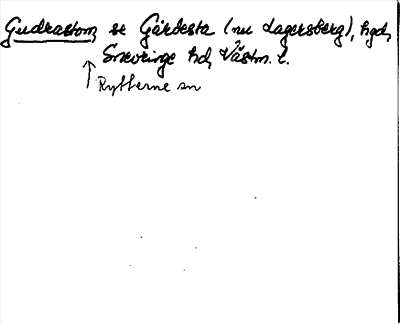 Gudrastom, se Gärdesta (nu Lagersberg), hgd,
Snevringe hd, Västm. l.
↑ Rytterne sn